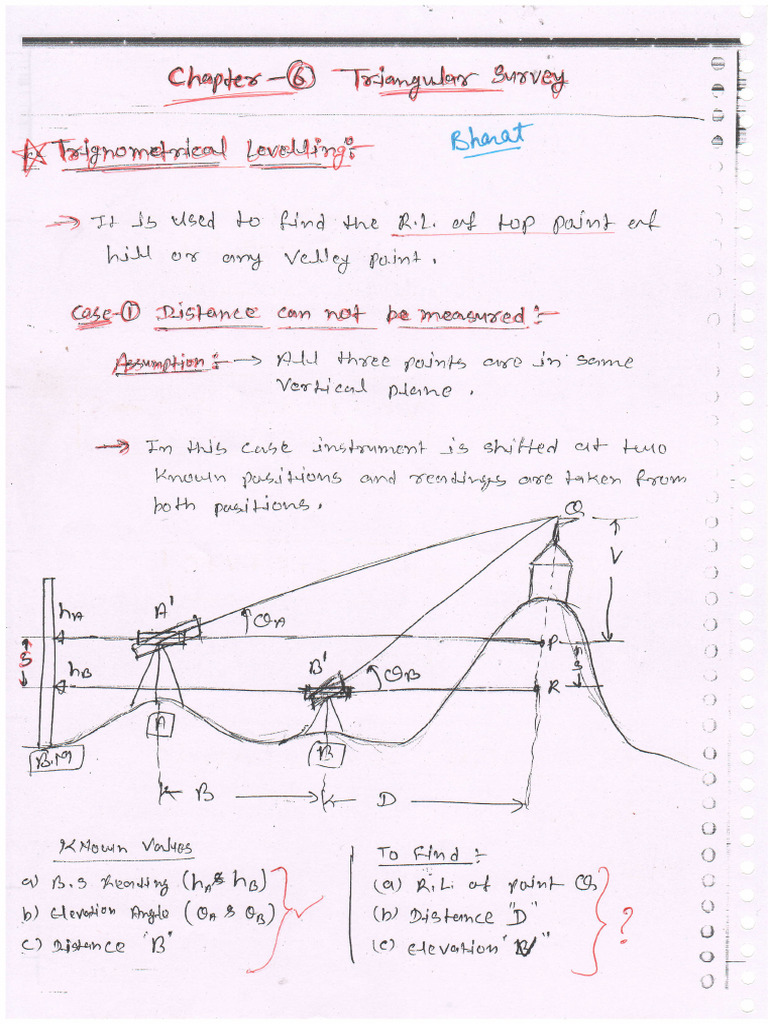 Chapter-⑥ Triangular Survey
Bharat
Trignometrical Levelling:-
→ It is used to find the R.L. of top point of
hill or any Valley point.
Case-① Distance can not be measured:-
Assumption:- → All three points are in same
Vertical plane.
→ In this case instrument is shifted at two
known positions and readings are taken from
both positions.
Q
V
hA
A'
θA
P
S
S
hB
B'
θB
R
A
B
B.M
B
D
Known Values
a) B.S Reading (hA & hB)
b) Elevation Angle (θA & θB)
c) Distance "B"
To Find:-
(a) R.L. of point Q
(b) Distance "D"
(c) Elevation "V"
?